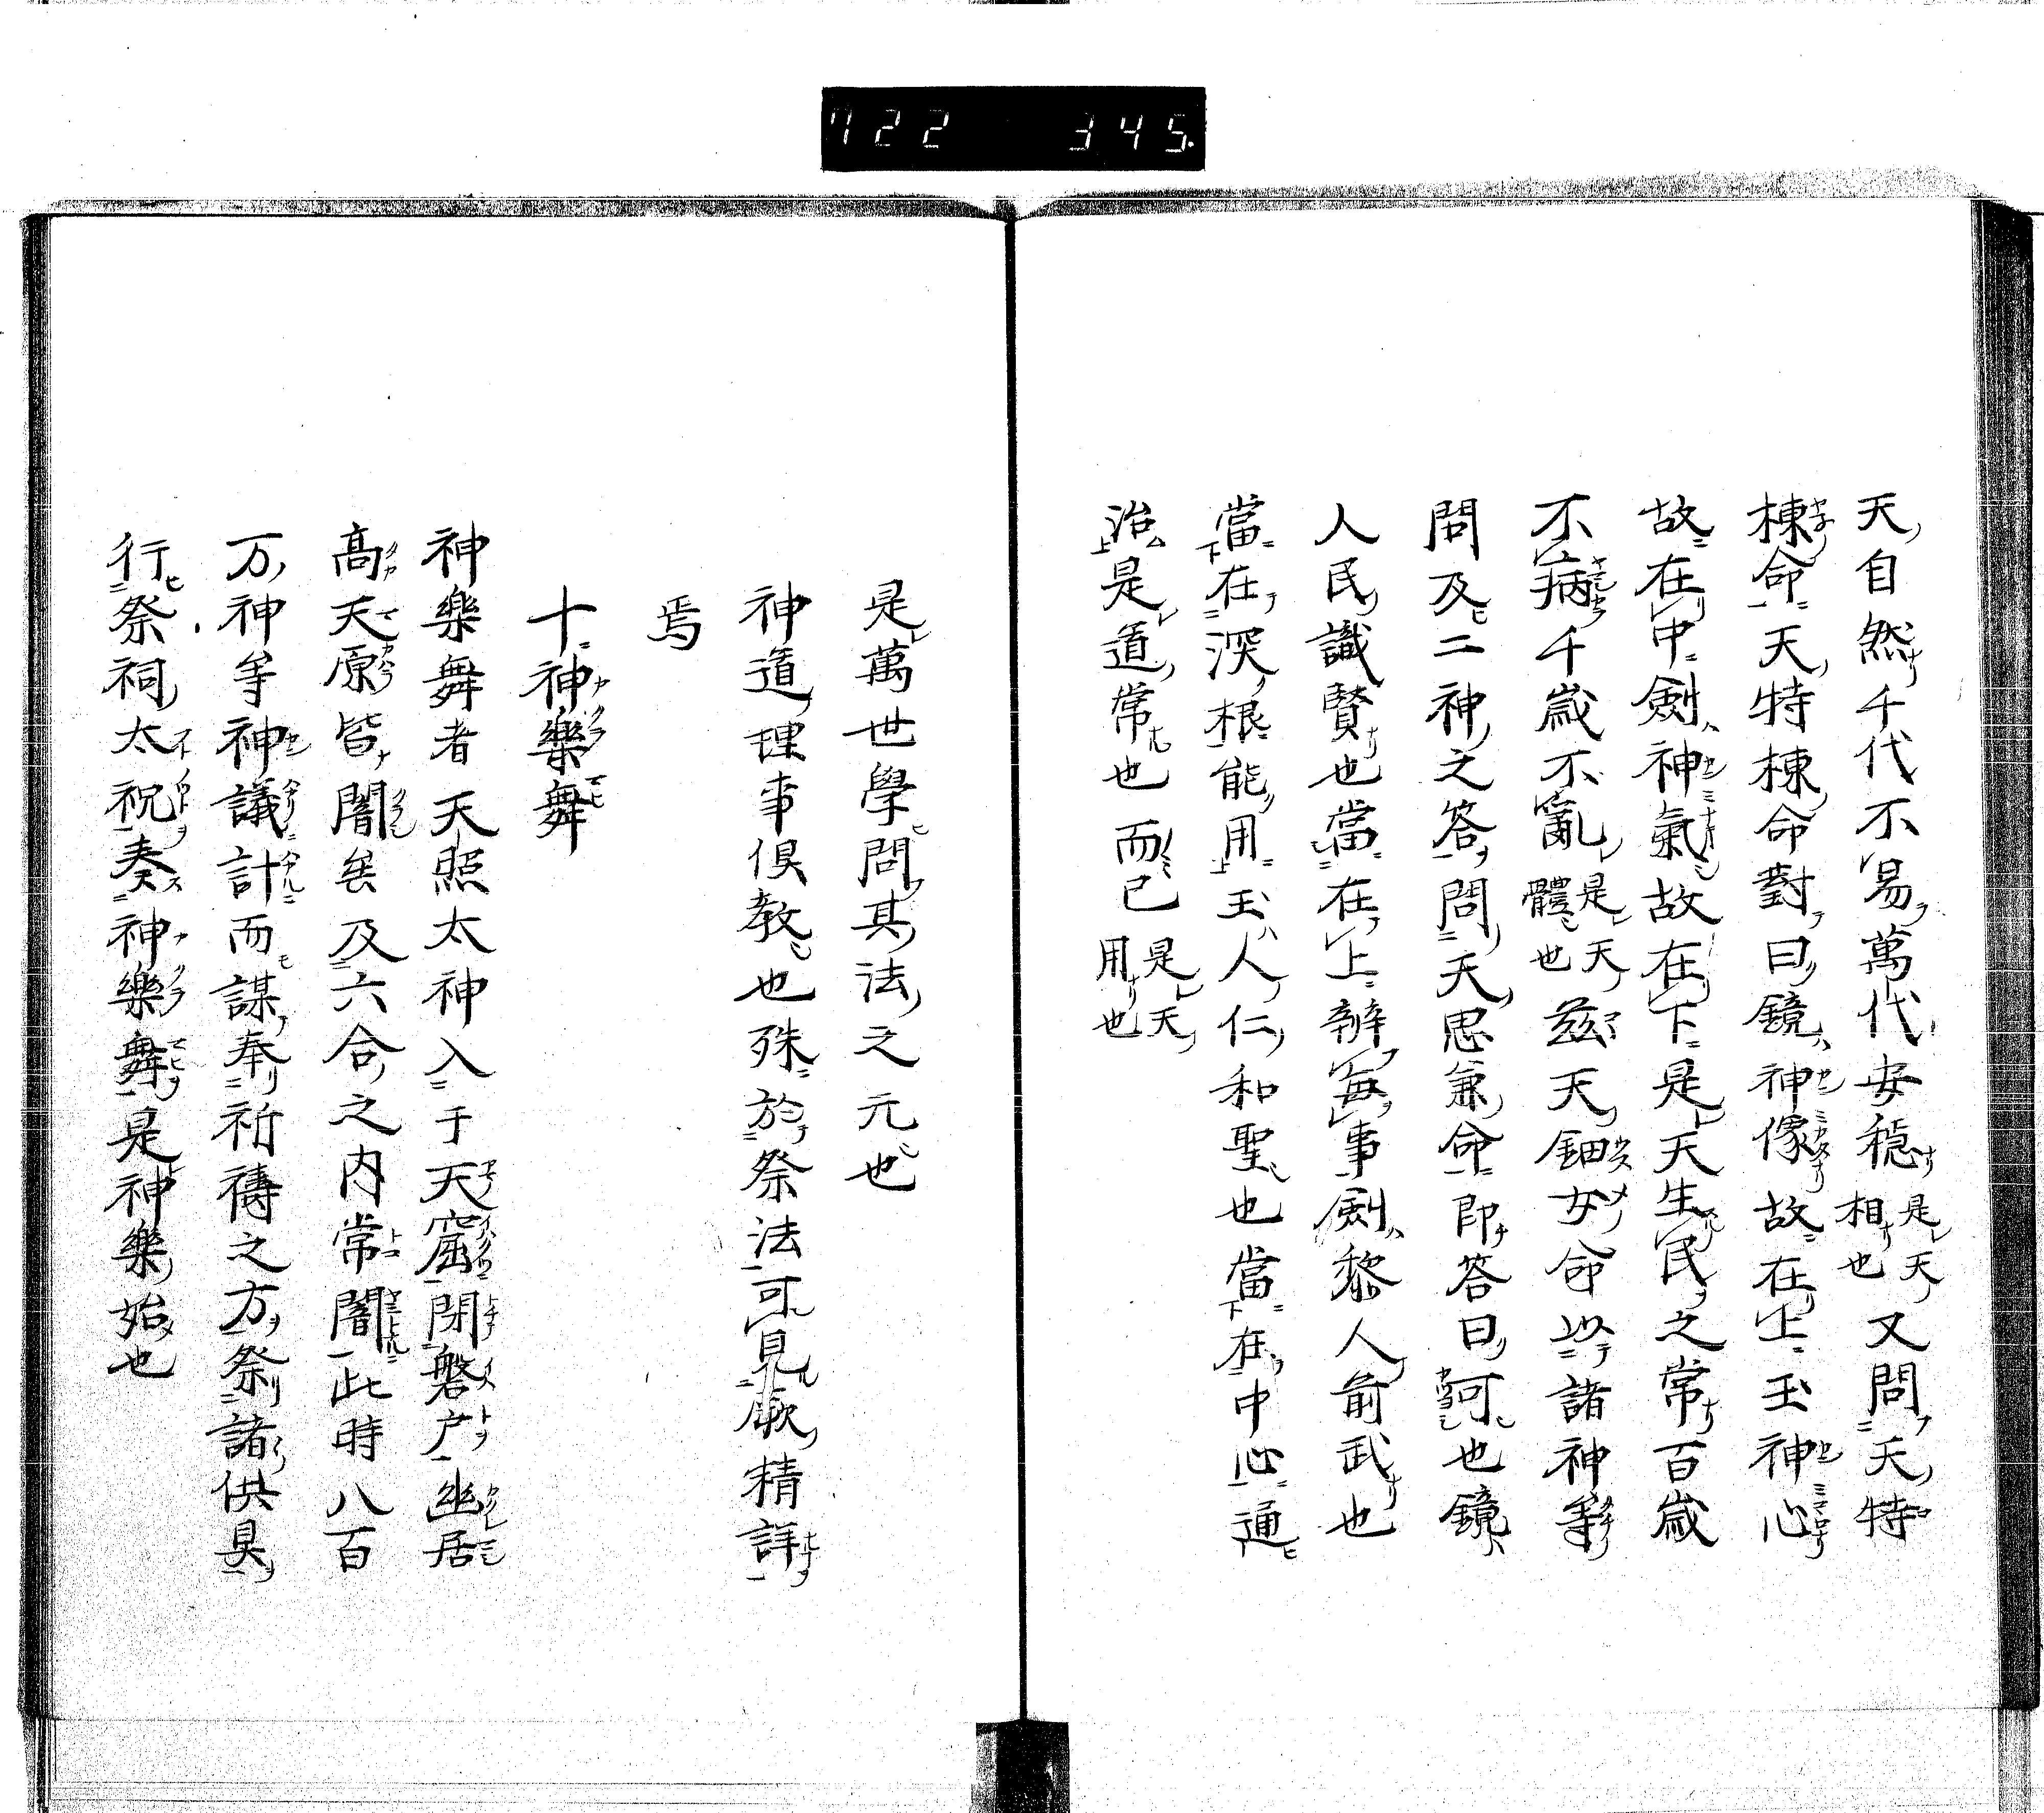 722 345.
天自然千代不易萬代安穏是天相也又問天特
棟命天特棟命對曰鏡神像故在上玉神心
故在中劍神氣故在下是天生民之常百歲
不病千歲不亂是天體也茲天鈿女命以諸神等
問及二神之答問天思兼命即答曰可也鏡
人民識賢也當在上辨每事劍黎人前武也
當在深根能用玉人仁和聖也當在中心通
治是道常也而已是天用也
是萬世學問其法之元也
神道理事俱教也殊於祭法可見厥精詳
焉
十神樂舞
神樂舞者天照太神入于天窟閉磐戶幽居
高天原皆闇矣及六合之內常闇此時八百
万神等神議計而謀奉祈禱之方祭諸供具
行祭祠太祝奏神樂舞是神樂始也